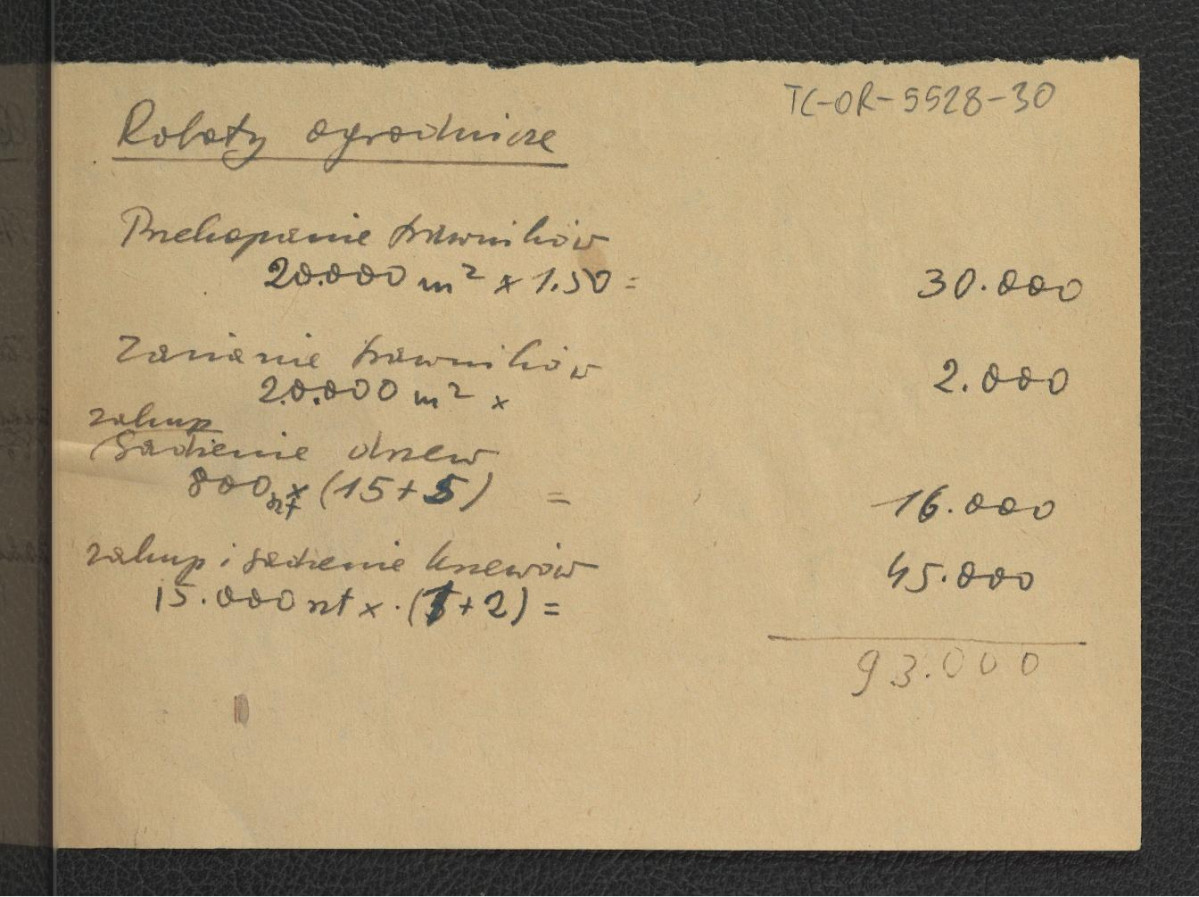 TC-OR-5528-30
Roboty ogrodnicze
Przekopanie trawników
20.000 m² x 1.50 =
30.000
Zasianie trawników
2.000
20.000 m² x
zakup
Sadzenie drzew
800 szt x (15+5) =
16.000
zakup i sadzenie krzewów
45.000
15.000 szt x . (1+2) =
93.000